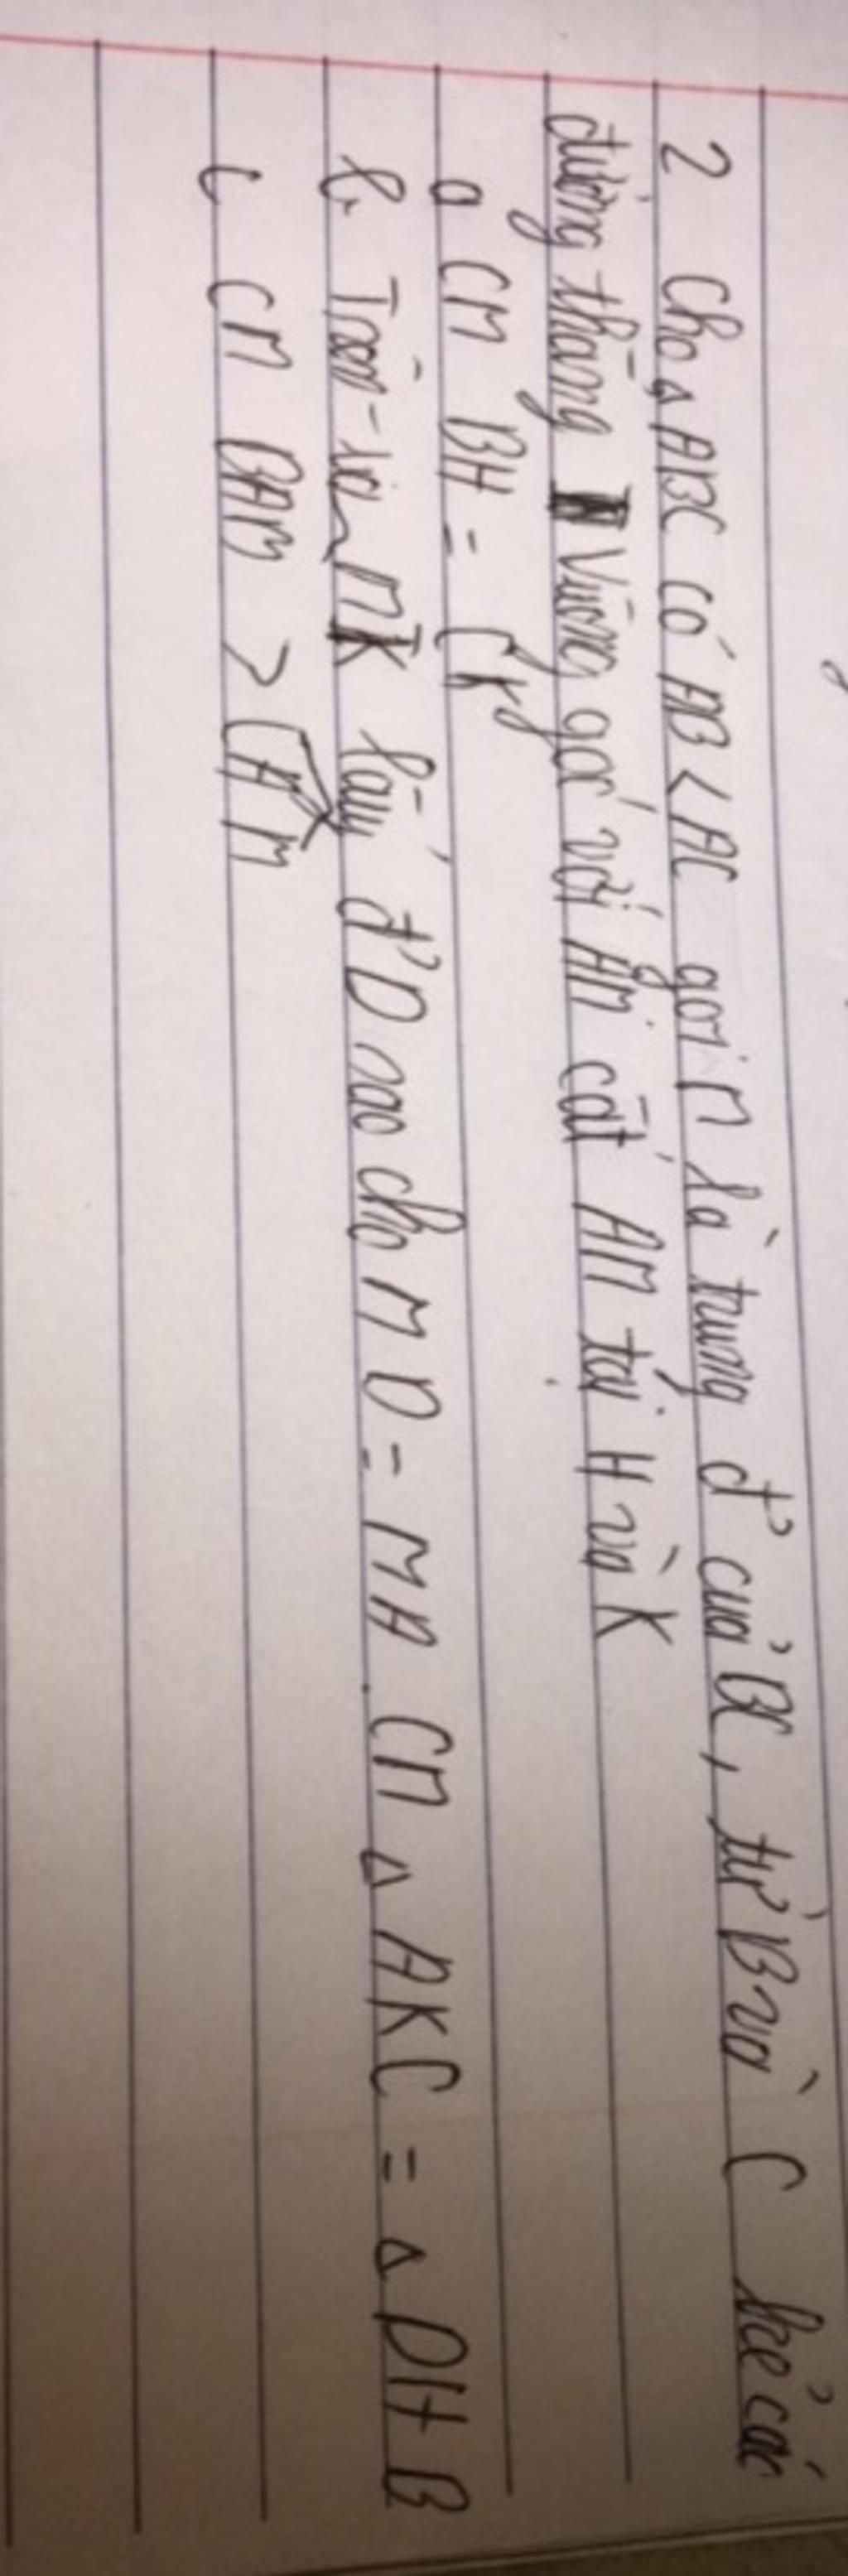 2 Cho △ ABC có AB < AC gọi M là trung đ' của BC, từ B và C kẻ các
đường thẳng vuông góc với AM cắt AM tại H và K
a CM BH = CK
b. Trên tia MK lấy đ' D sao cho MD = MA. CM △ AKC = △ DHB
c CM BAM > CAM